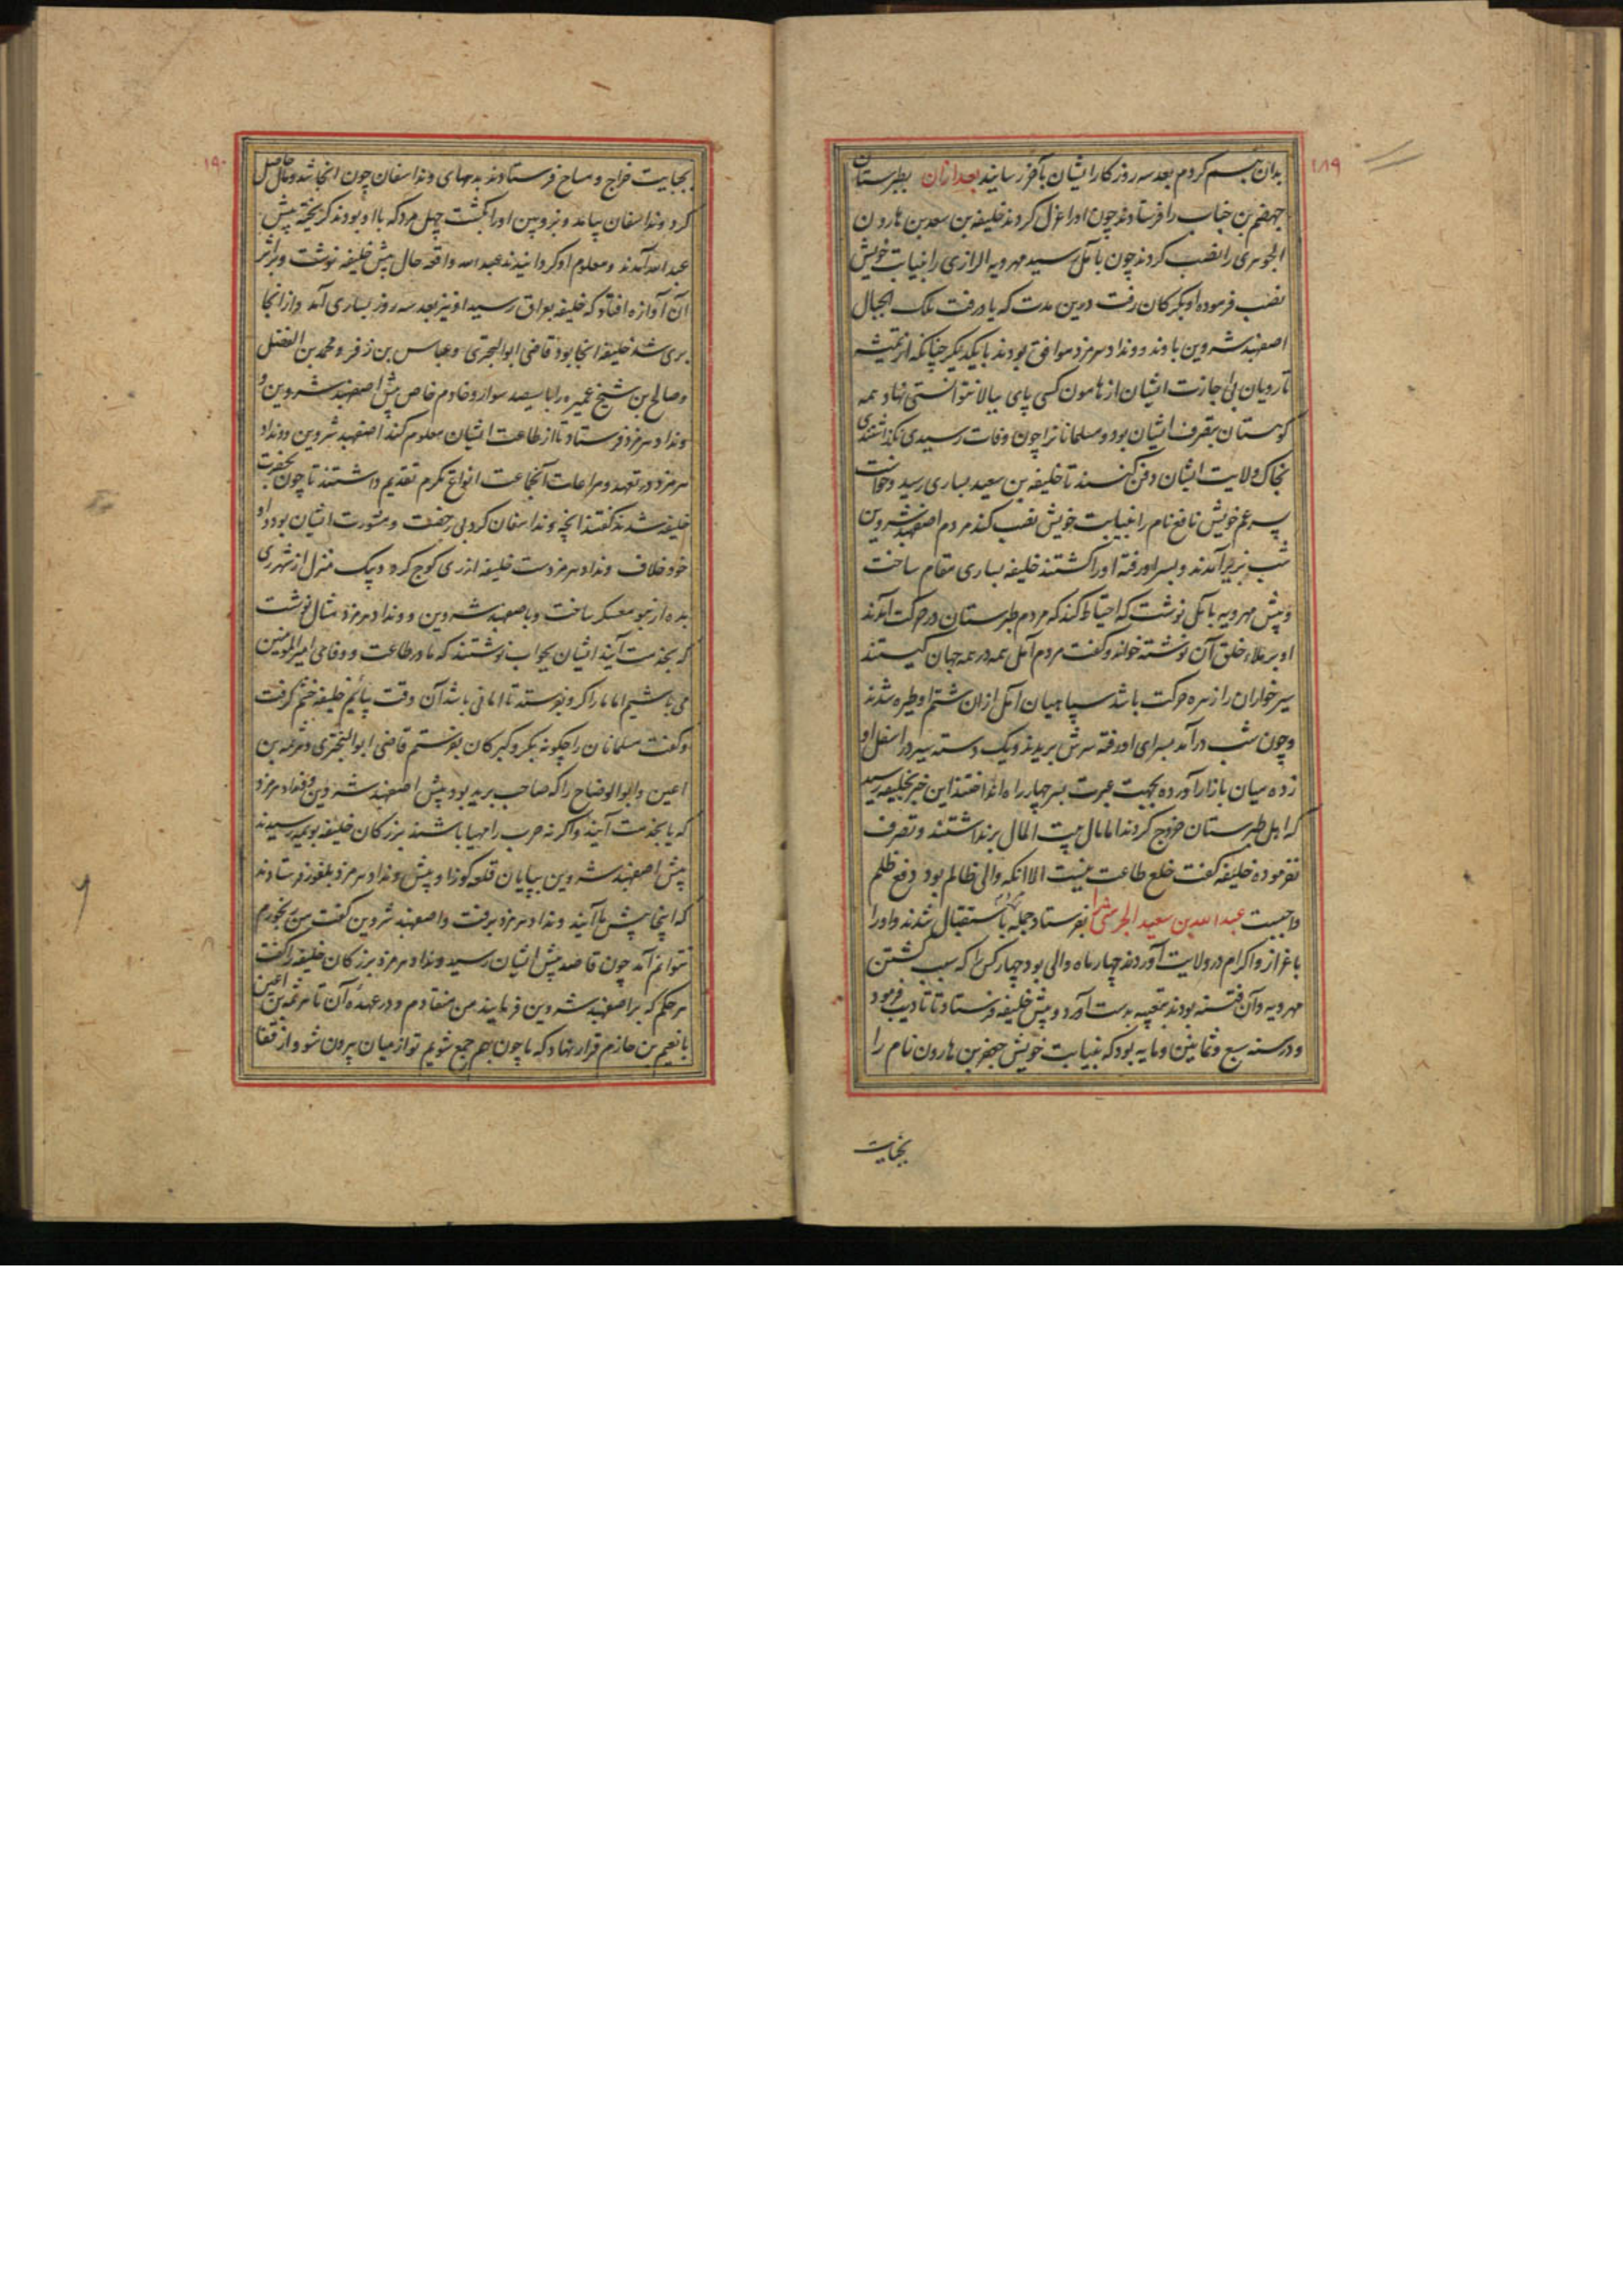 ۱۸۹
بدان قسم کردم بعد سه روز کار ایشان بآخر رسانید بعد ازان بطبرستان
جهضم بن خباب را فرستادند چون اورا عزل کردند خلیفه بن سعد بن هارون
الجوهری را نصب کردند چون بآمل رسید مهرویه الرازی را بنیابت خویش
نصب فرموده او بکرکان رفت درین مدت که یاد رفت ملک الجبال
اصفهبد شروین باوند و ونداد هرمزد موافق بودند با یکدیکر چنانکه از تمیشه
تا رویان بی اجازت ایشان از هامون کسی پای ببالا نتوانستی نهاد همه
کوهستان بتصرف ایشان بود و مسلمانانرا چون وفات رسیدی نکذاشتندی
بخاک ولایت ایشان دفن کنند تا خلیفه بن سعید بساری رسید وخواست
پسر عم خویش نافع نام را بنیابت خویش نصب کند مردم اصفهبد شروین
شب بزیر آمدند و بسر او رفته اورا کشتند خلیفه بساری مقام ساخت
و پیش مهرویه بآمل نوشت که احتیاط کند که مردم طبرستان در حرکت آمدند
او بر ملاء خلق آن نوشته خواند و کفت مردم آمل همه در همه جهان کیستند
سیر خواران را زهره حرکت باشد سپاهیان آمل ازان شتم او طیره شدند
و چون شب درآمد بسرای او رفته سرش بریدند و یک دسته سیر در اسفل او
زده میان بازار آورده بجهت عبرت بسر چهار راه انداختند این خبر بخلیفه رسید
که اهل طبرستان خروج کردند اما مال بیت المال برنداشتند و تصرف
نفرموده خلیفه کفت خلع طاعت نیست الا انکه والی ظالم بود دفع ظلم
واجبست عبد الله بن سعید الجرشی را بفرستاد جمله باستقبال شدند و اورا
باعزاز و اکرام در ولایت آوردند چهار ماه والی بود چهار کس را که سبب کشتن
مهرویه و آن فتنه بودند بتعبیه بدست آورد و پیش خلیفه فرستاد تا تادیب فرمود
و در سنه سبع و ثمانین و مایه بود که بنیابت خویش جعفر بن هارون نام را
بجبایت
۱۹۰
بجبایت خراج و مساح فرستادند بدیهای ونداسفان چون انجا شد و مال حاصل
کرد ونداسفان بیامد و بزوبین اورا بکشت چهل مرد که با او بودند کریخته پیش
عبد الله آمدند و معلوم او کردانیدند عبد الله واقعه حال پیش خلیفه نوشت و بر اثر
آن آوازه افتاد که خلیفه بعراق رسید او نیز بعد سه روز بساری آمد و از انجا
بری شد خلیفه انجا بود قاضی ابو البختری و عباس بن زفر و محمد بن الفضل
و صالح بن شیخ عمیره را با سیصد سوار و خادم خاص پیش اصفهبد شروین و
ونداد هرمزد فرستاد تا از طاعت ایشان معلوم کند اصفهبد شروین و ونداد
هرمزد در تعهد و مراعات آنجماعت انواع تکرم تقدیم داشتند تا چون بحضرت
خلیفه شدند کفتند انچه ونداسفان کرد بی رخصت و مشورت ایشان بود و او
خود خلاف ونداد هرمزدست خلیفه از ری کوچ کرد و بیک منزل از شهر ری
بده ارنبو معسکر ساخت و باصفهبد شروین و ونداد هرمزد مثال نوشت
که بخدمت آیند ایشان بجواب نوشتند که ما در طاعت و وفاء امیر المومنین
می باشیم اما مارا کرو بفرستد تا امانی باشد آن وقت بیائیم خلیفه خشم کرفت
و کفت مسلمانان را چکونه بکرو کبرکان بفرستم قاضی ابو البختری و هرثمه بن
اعین و ابو الوضاح را که صاحب برید بود پیش اصفهبد شروین و ونداد هرمزد
که یا بخدمت آیند و اکر نه حرب را مهیا باشند بزرکان خلیفه بویمه رسیدند
پیش اصفهبد شروین بپایان قلعه کوزا و پیش ونداد هرمزد بلفور فرستادند
که اینجا پیش ما آیند ونداد هرمزد برفت و اصفهبد شروین کفت من رنجورم
نتوانم آمد چون قاصد پیش ایشان رسید ونداد هرمزد بزرکان خلیفه را کفت
هر حکم که بر اصفهبد شروین فرمایند من منقادم و در عهده آن تا هرثمه بن اعین
با نعیم بن حازم قرار نهاد که ما چون بهم جمع شویم تو از میان بیرون شو و از قفا